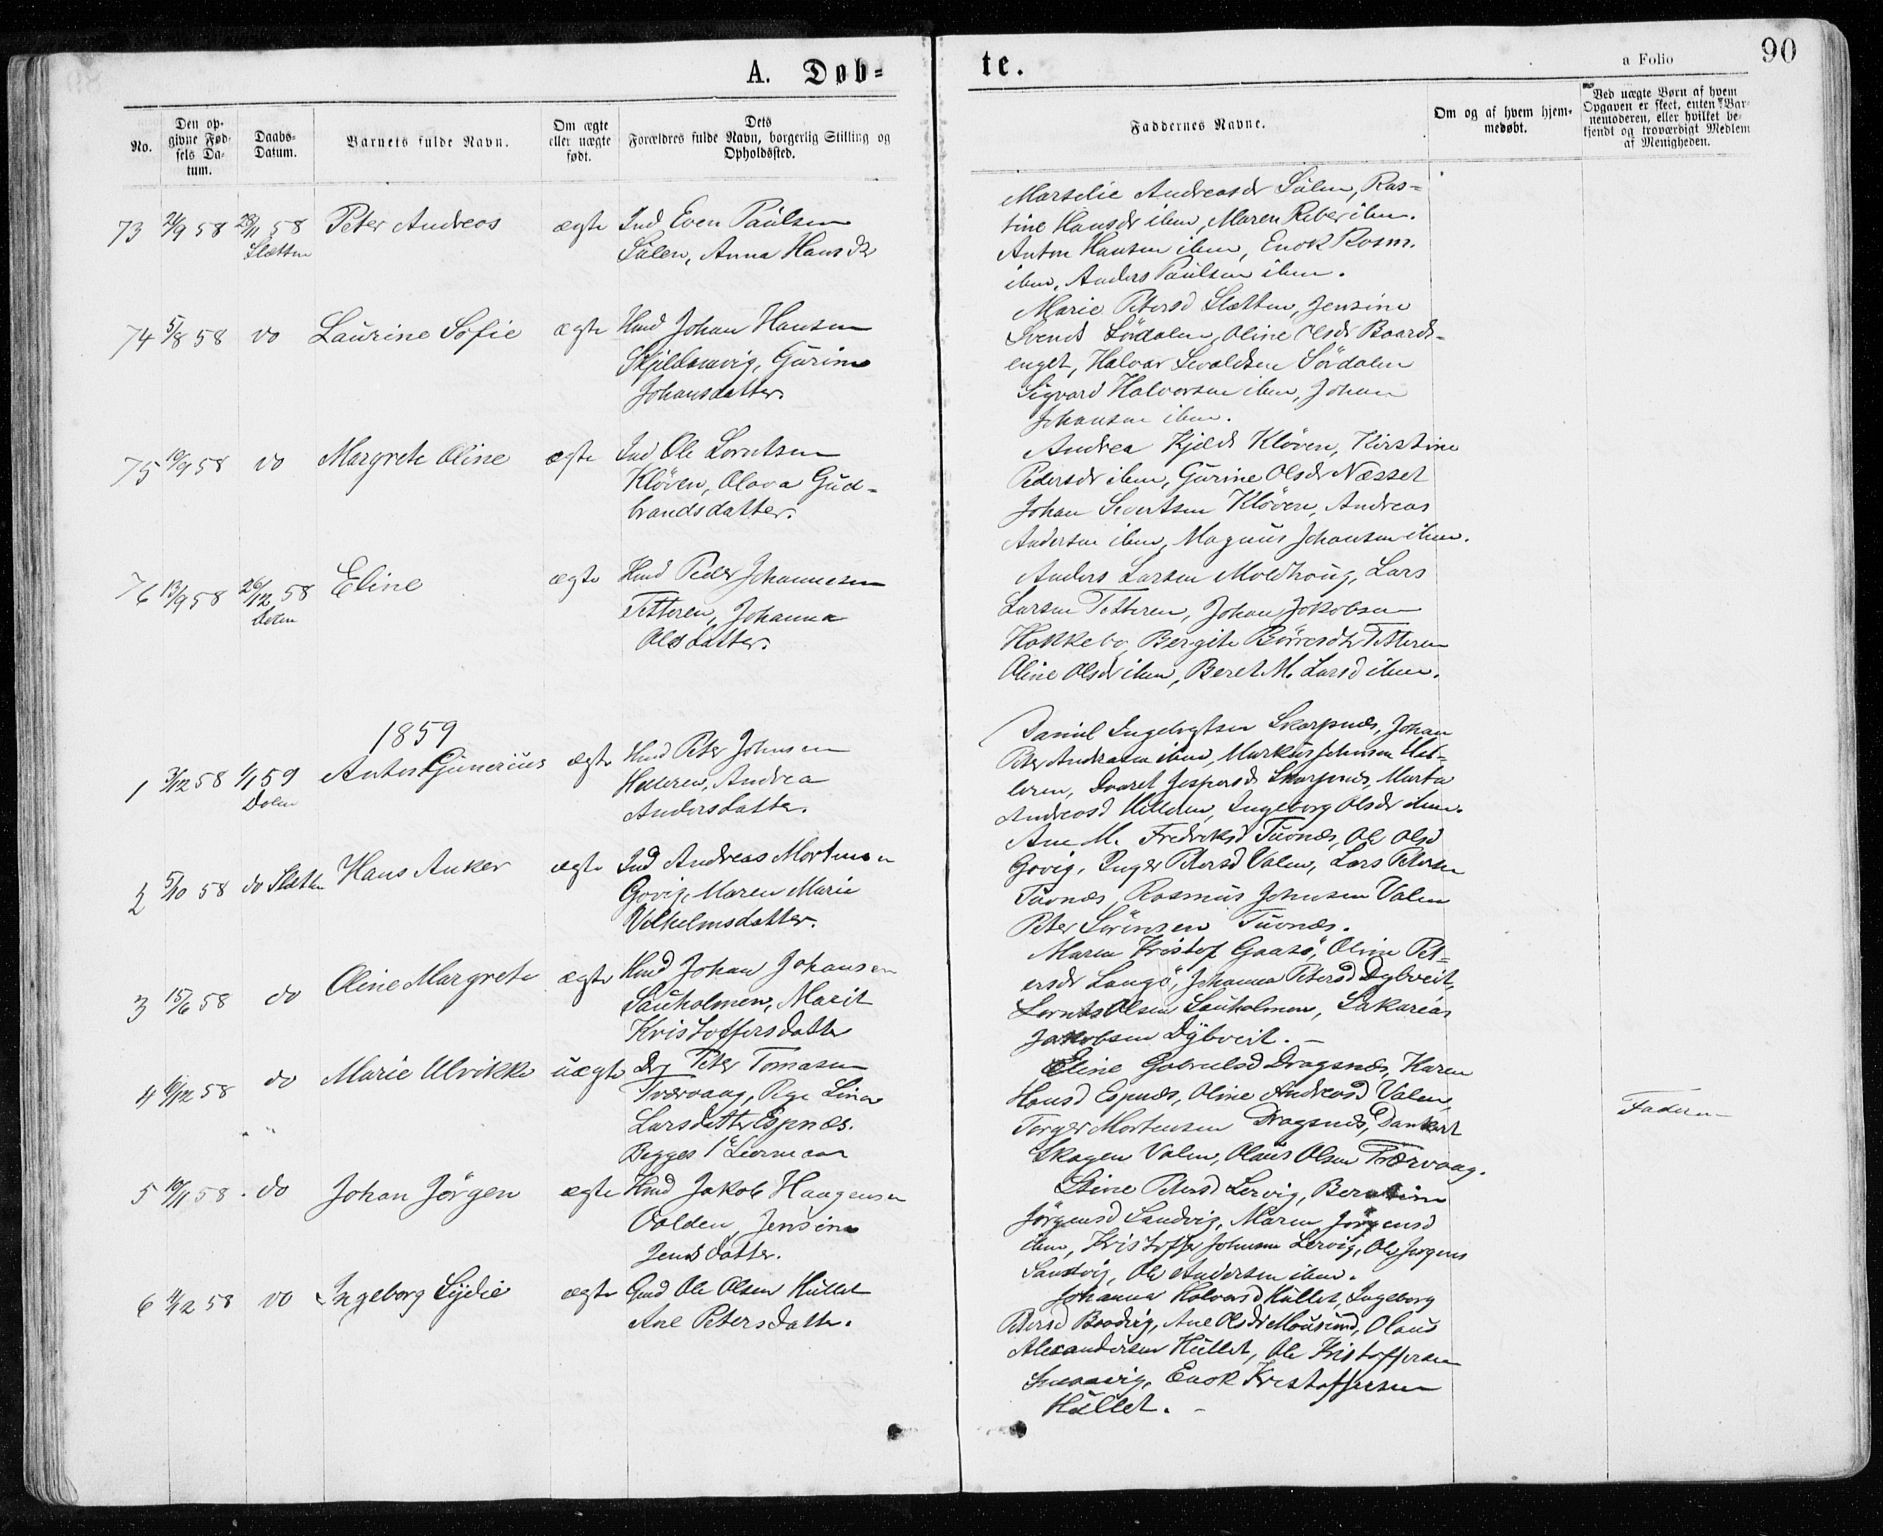 A. Døb=
te.
a Folio
90
No.
Den op-
givne Fød-
sels Da-
tum.
Daabs-
Datum.
Barnets fulde Navn.
Om ægte
eller uægte
født.
Dets
Forældres fulde Navn, borgerlig Stilling og
Opholdssted.
Faddernes Navne.
Om og af hvem hjem-
medøbt.
Ved uægte Børn af hvem
Opgaven er skeet, enten Bar-
nemoderen, eller hvilket be-
kjendt og troværdigt Medlem
af Menigheden.
73 58 58 Peter Andreas ægte Ind Even Paulsen
Slætten Sålen, Anna Hansdr
Andreasdr Sålen, Ras-
tine Hansdr ibm, Maren Reber ibm.
Anton Hansen ibm, Enok Rasm.
ibm, Anders Paulsen ibm.
74 5/8 58 do Laurine Sofie ægte Hmd Johan Hansen
Gurine
Johansdatter.
Marie Petersd Slætten, Jensine
Svends Sördalen, Oline Olsdr Baards-
enget, Halvar Sördalen
Sigvard Halvorsen ibm, Johan
Johansen ibm.
75 10/9 58 do Margrete Oline ægte Ind Ole Lorntsen
Klöven, Olava Gud-
brandsdatter.
Andrea Klöven, Kirstine
Pedersdr ibm, Gurine Olsdr Næsset
Johan Sivertsen Klöven, Andreas
Andersen ibm, Magnus Johansen ibm.
76 13/9 58 26/12 58 Eline ægte Hmd Peder Johannesen
Dolm Titteren, Johanna
Olsdatter.
Anders Larsen Moldhoug, Lars
Larsen Titteren, Johan Jokobsen
Hokkebo, Bergite Börresdtr Titteren
Oline Olsdr ibm, Beret M. Larsd ibm.
1859
1 3/12 58 1/1 59 Anton Gunerius ægte Hmd Peter Johnsen
Dolm Helleren, Andrea
Andersdatter.
Daniel Ingebrigtsen Skarpnes, Johan
Peter Andreasen ibm, Markus Johnsen Hel-
leren, Jespersdr Skarpnes, Marta
Andreasd Helleren, Ingeborg Olsdr ibm.
2 5/10 58 do Slætten Hans Anker ægte Ind Andreas Mortensen
Govig, Maren Marie
Vilhelmsdatter.
Ane M. Fredriksd Tuvnæs, Ole Olsd
Govig, Inger Petersd Valen, Lars Petersen
Tuvnæs, Rasmus Johnsen Valen
Peter Sörensen Tuvnæs.
3 15/6 58 do Oline Margrete ægte Hmd Johan Johansen
Sauholmen, Marit
Kristoffersdatter
Maren Kristof Gaasö, Oline Pet-
ersdr Langö, Johanna Petersd Dybveit,
Lornts Olsen Sauholmen, Sakarias
Jakobsen Dybveit. —
4 6/12 58 do Marie Ulrikke uægte Dr Peter Tomasen
Tværvaag, Pige Lina
Larsdatter Espnæs.
Begges 1ste Leiermaal
Eline Gabrielsd Dragsnæs, Karen
Hansd Espnæs, Oline Andreasd Valen,
Torger Mortensen Dragsnæs, Dankert
Skagen Valen, Olaus Olsen Tværvaag.
Faderen
5 10/11 58 do Johan Jörgen ægte Hmd Jakob Haagensen
Valden, Jensine
Jensdatter.
Stine Petersd Lervig, Berntine
Jörgensd Sandvig, Maren Jörgensd
ibm, Kristoffer Johnsen Lervig, Ole Jörgens
Sandvig, Ole Andersen ibm.
6 11/12 58 do Ingeborg Lydie ægte Gmd Ole Olsen Hullet
Ane Petersdatter.
Johanna Halvorsd Hullet, Ingeborg
Petersd Ane Olsdr Mausund, Olaus
Alexandersen Hullet, Ole Kristoffersen
Enok Kristoffersen
Hullet. —